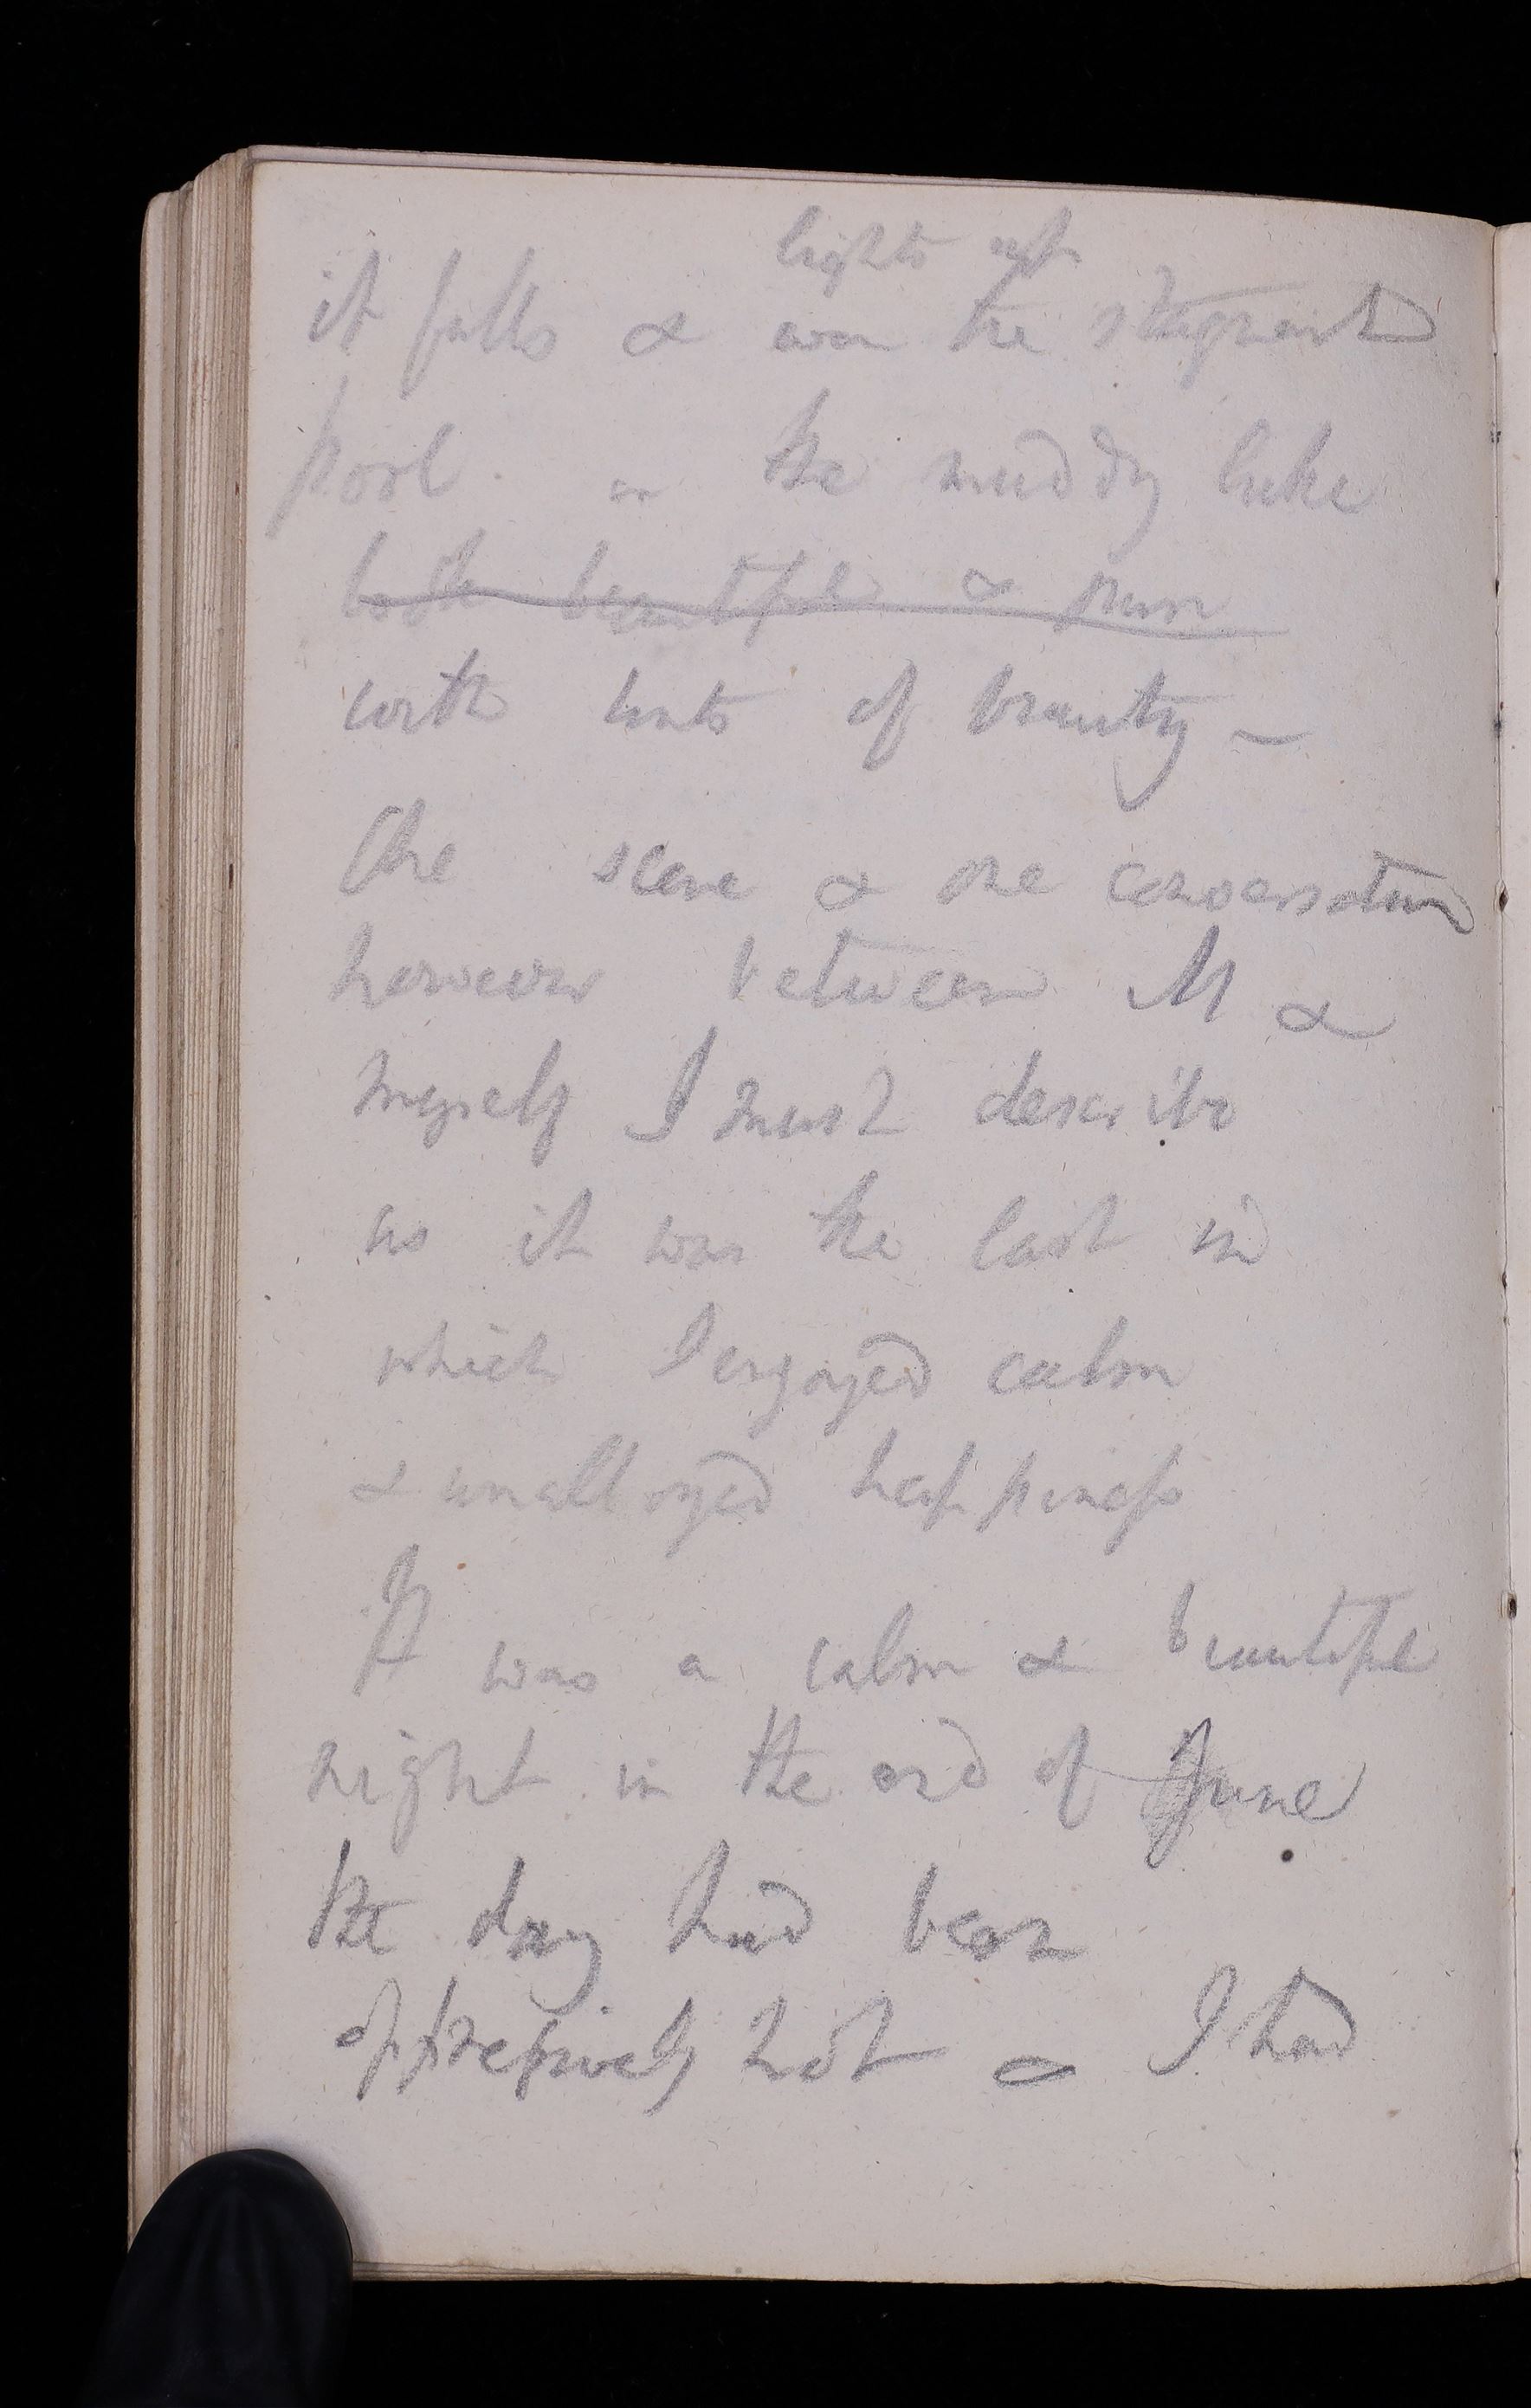 lights up
it falls & even the stagnant
pool or the muddy lake
both beautiful & pure
with tints of beauty –
The scene & the conversation
however between M &
myself I must describe
as it was the last in
which I enjoyed calm
& unalloyed happiness
It was a calm & beautiful
night in the end of June
the day had been
oppressively hot & I had